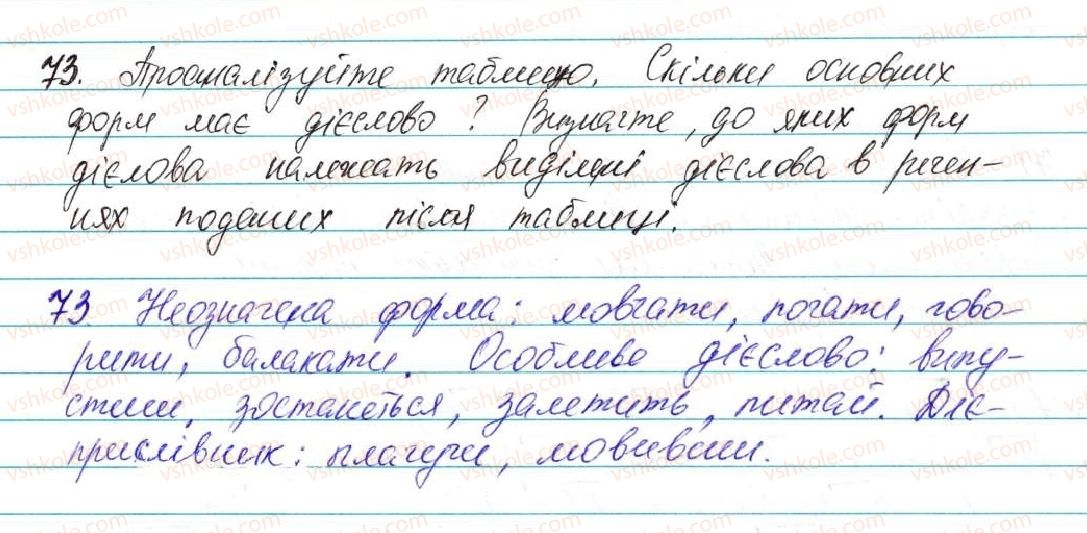 73. Проаналізуйте таблицю. Скільки основних
форм має дієслово? Визначте, до яких форм
дієлова належать виділені дієслова в речен-
нях поданих після таблиці.
73. Неозначена форма: мовчати, почати, гово-
рити, балакати. Особливе дієслово: випу-
стиш, зостанеться, залетить, питай. Діє-
прислівник: плачучи, мовивши.